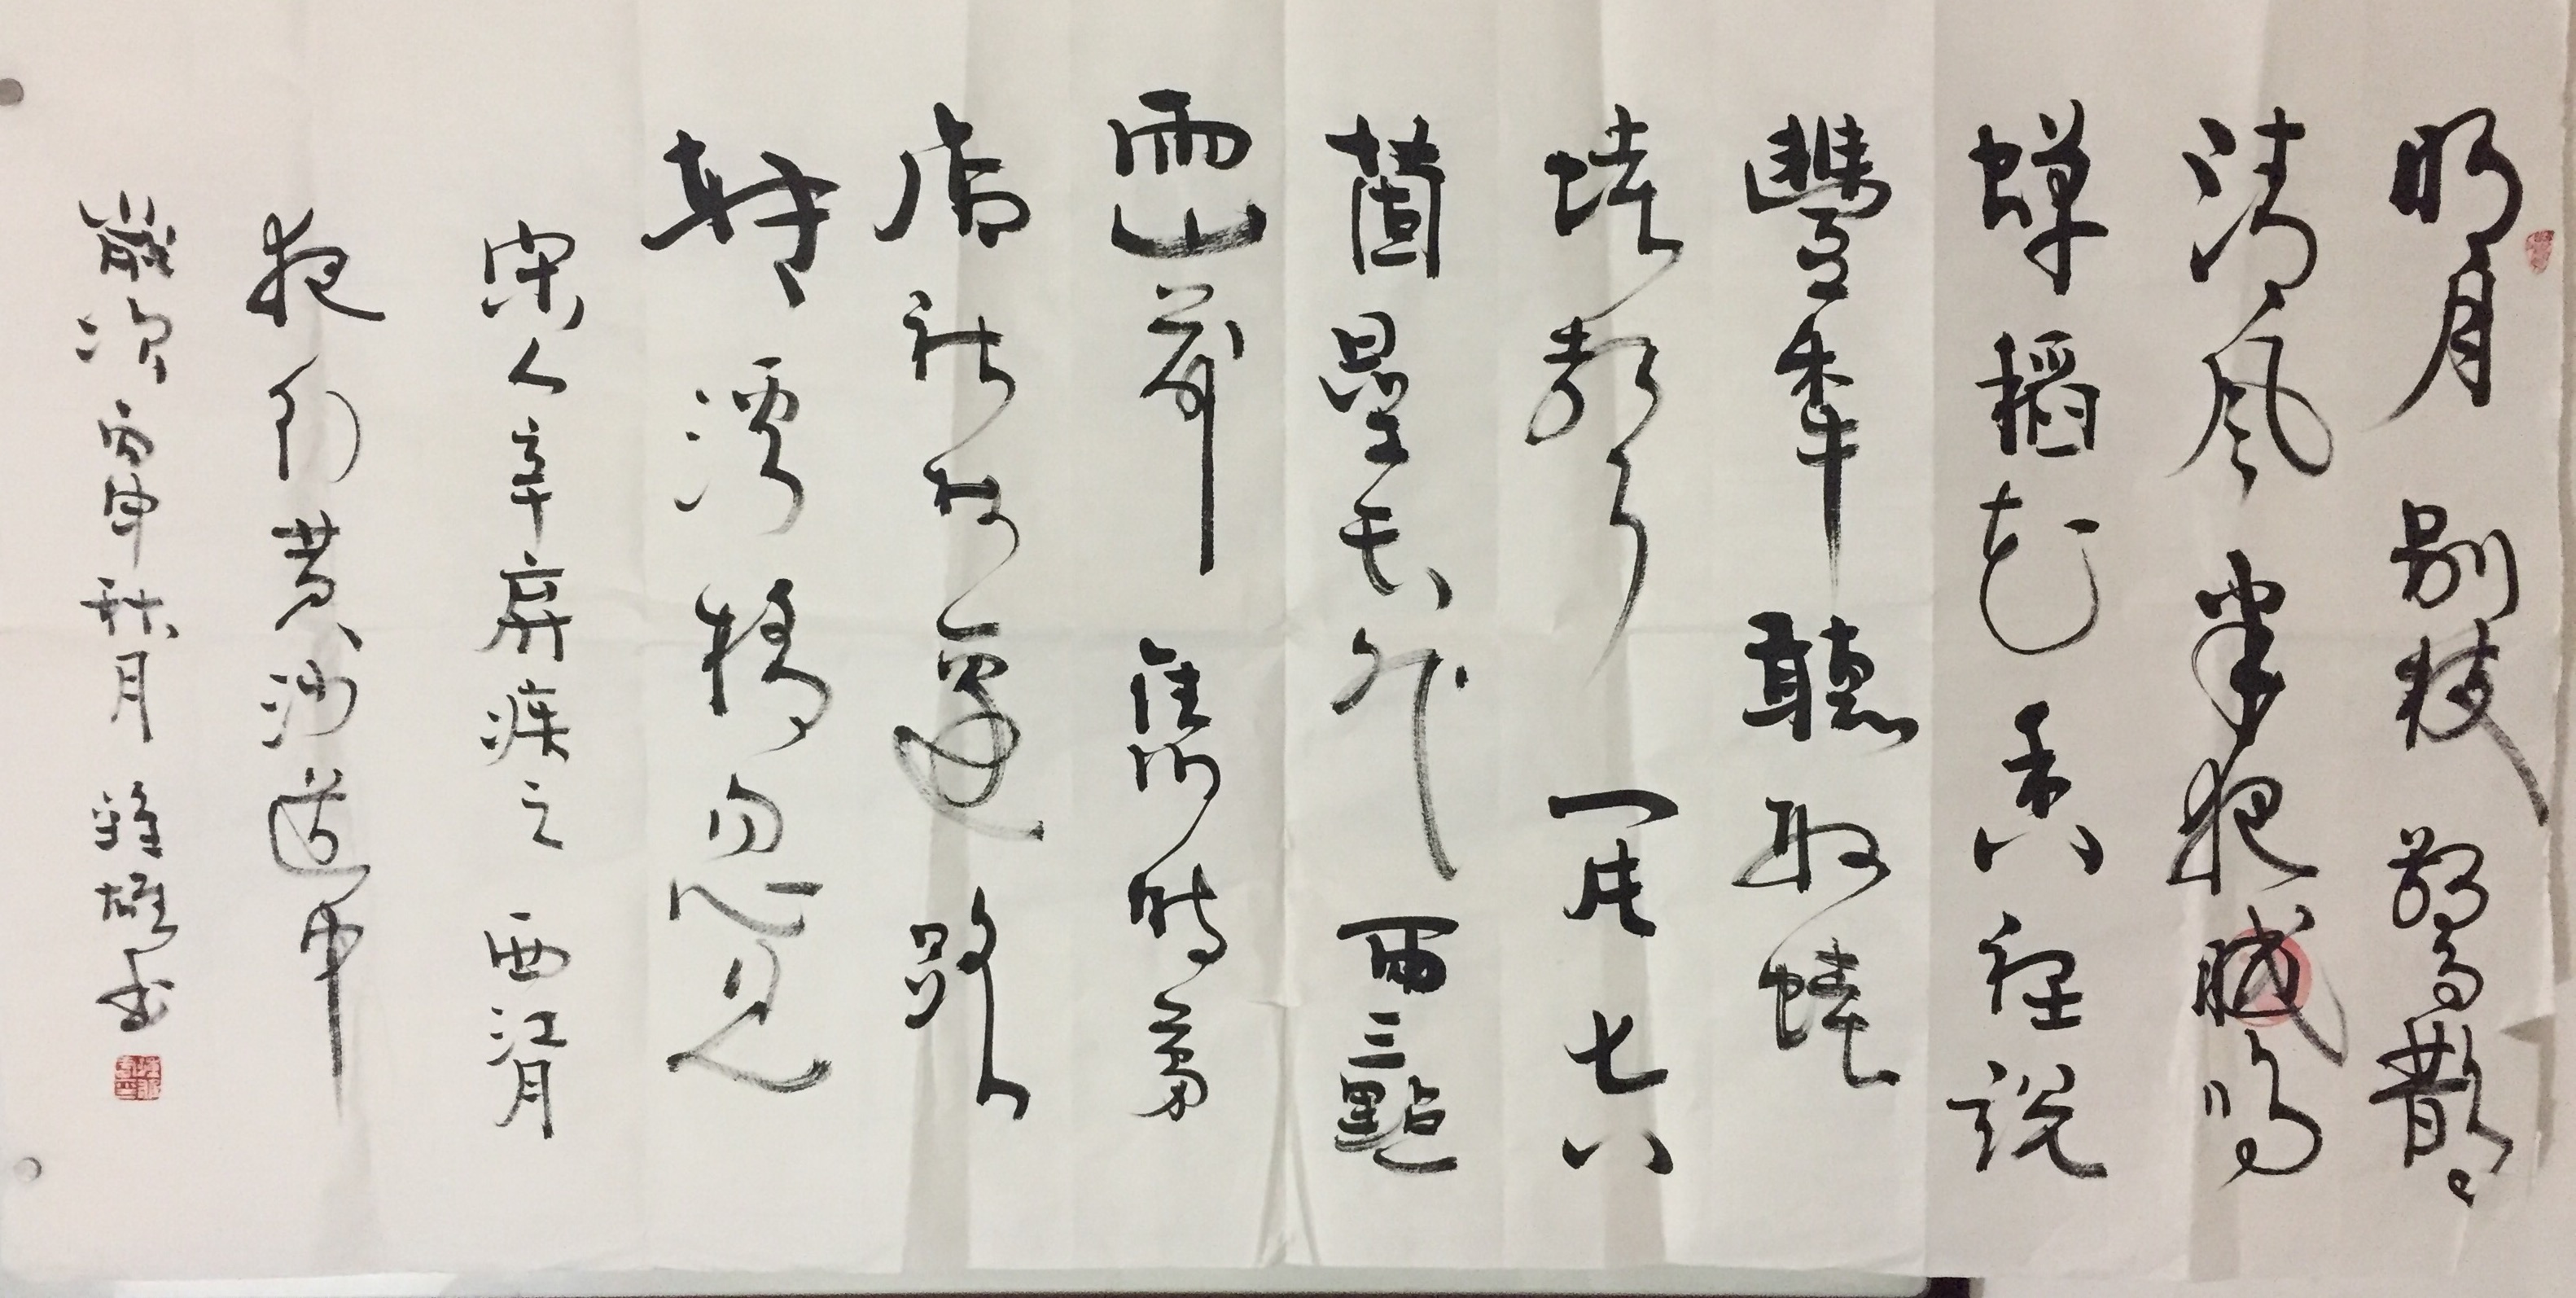 明月別枝驚鵲
清風半夜鳴
蟬稻花香裡說
豐年聽取蛙
蛙聲一片七八
箇星天外兩三點
雨山前舊時茅
店社林邊路
轉溪橋忽見
宋人辛棄疾之西江月
夜行黃沙道中
歲次丙申秋月雄書